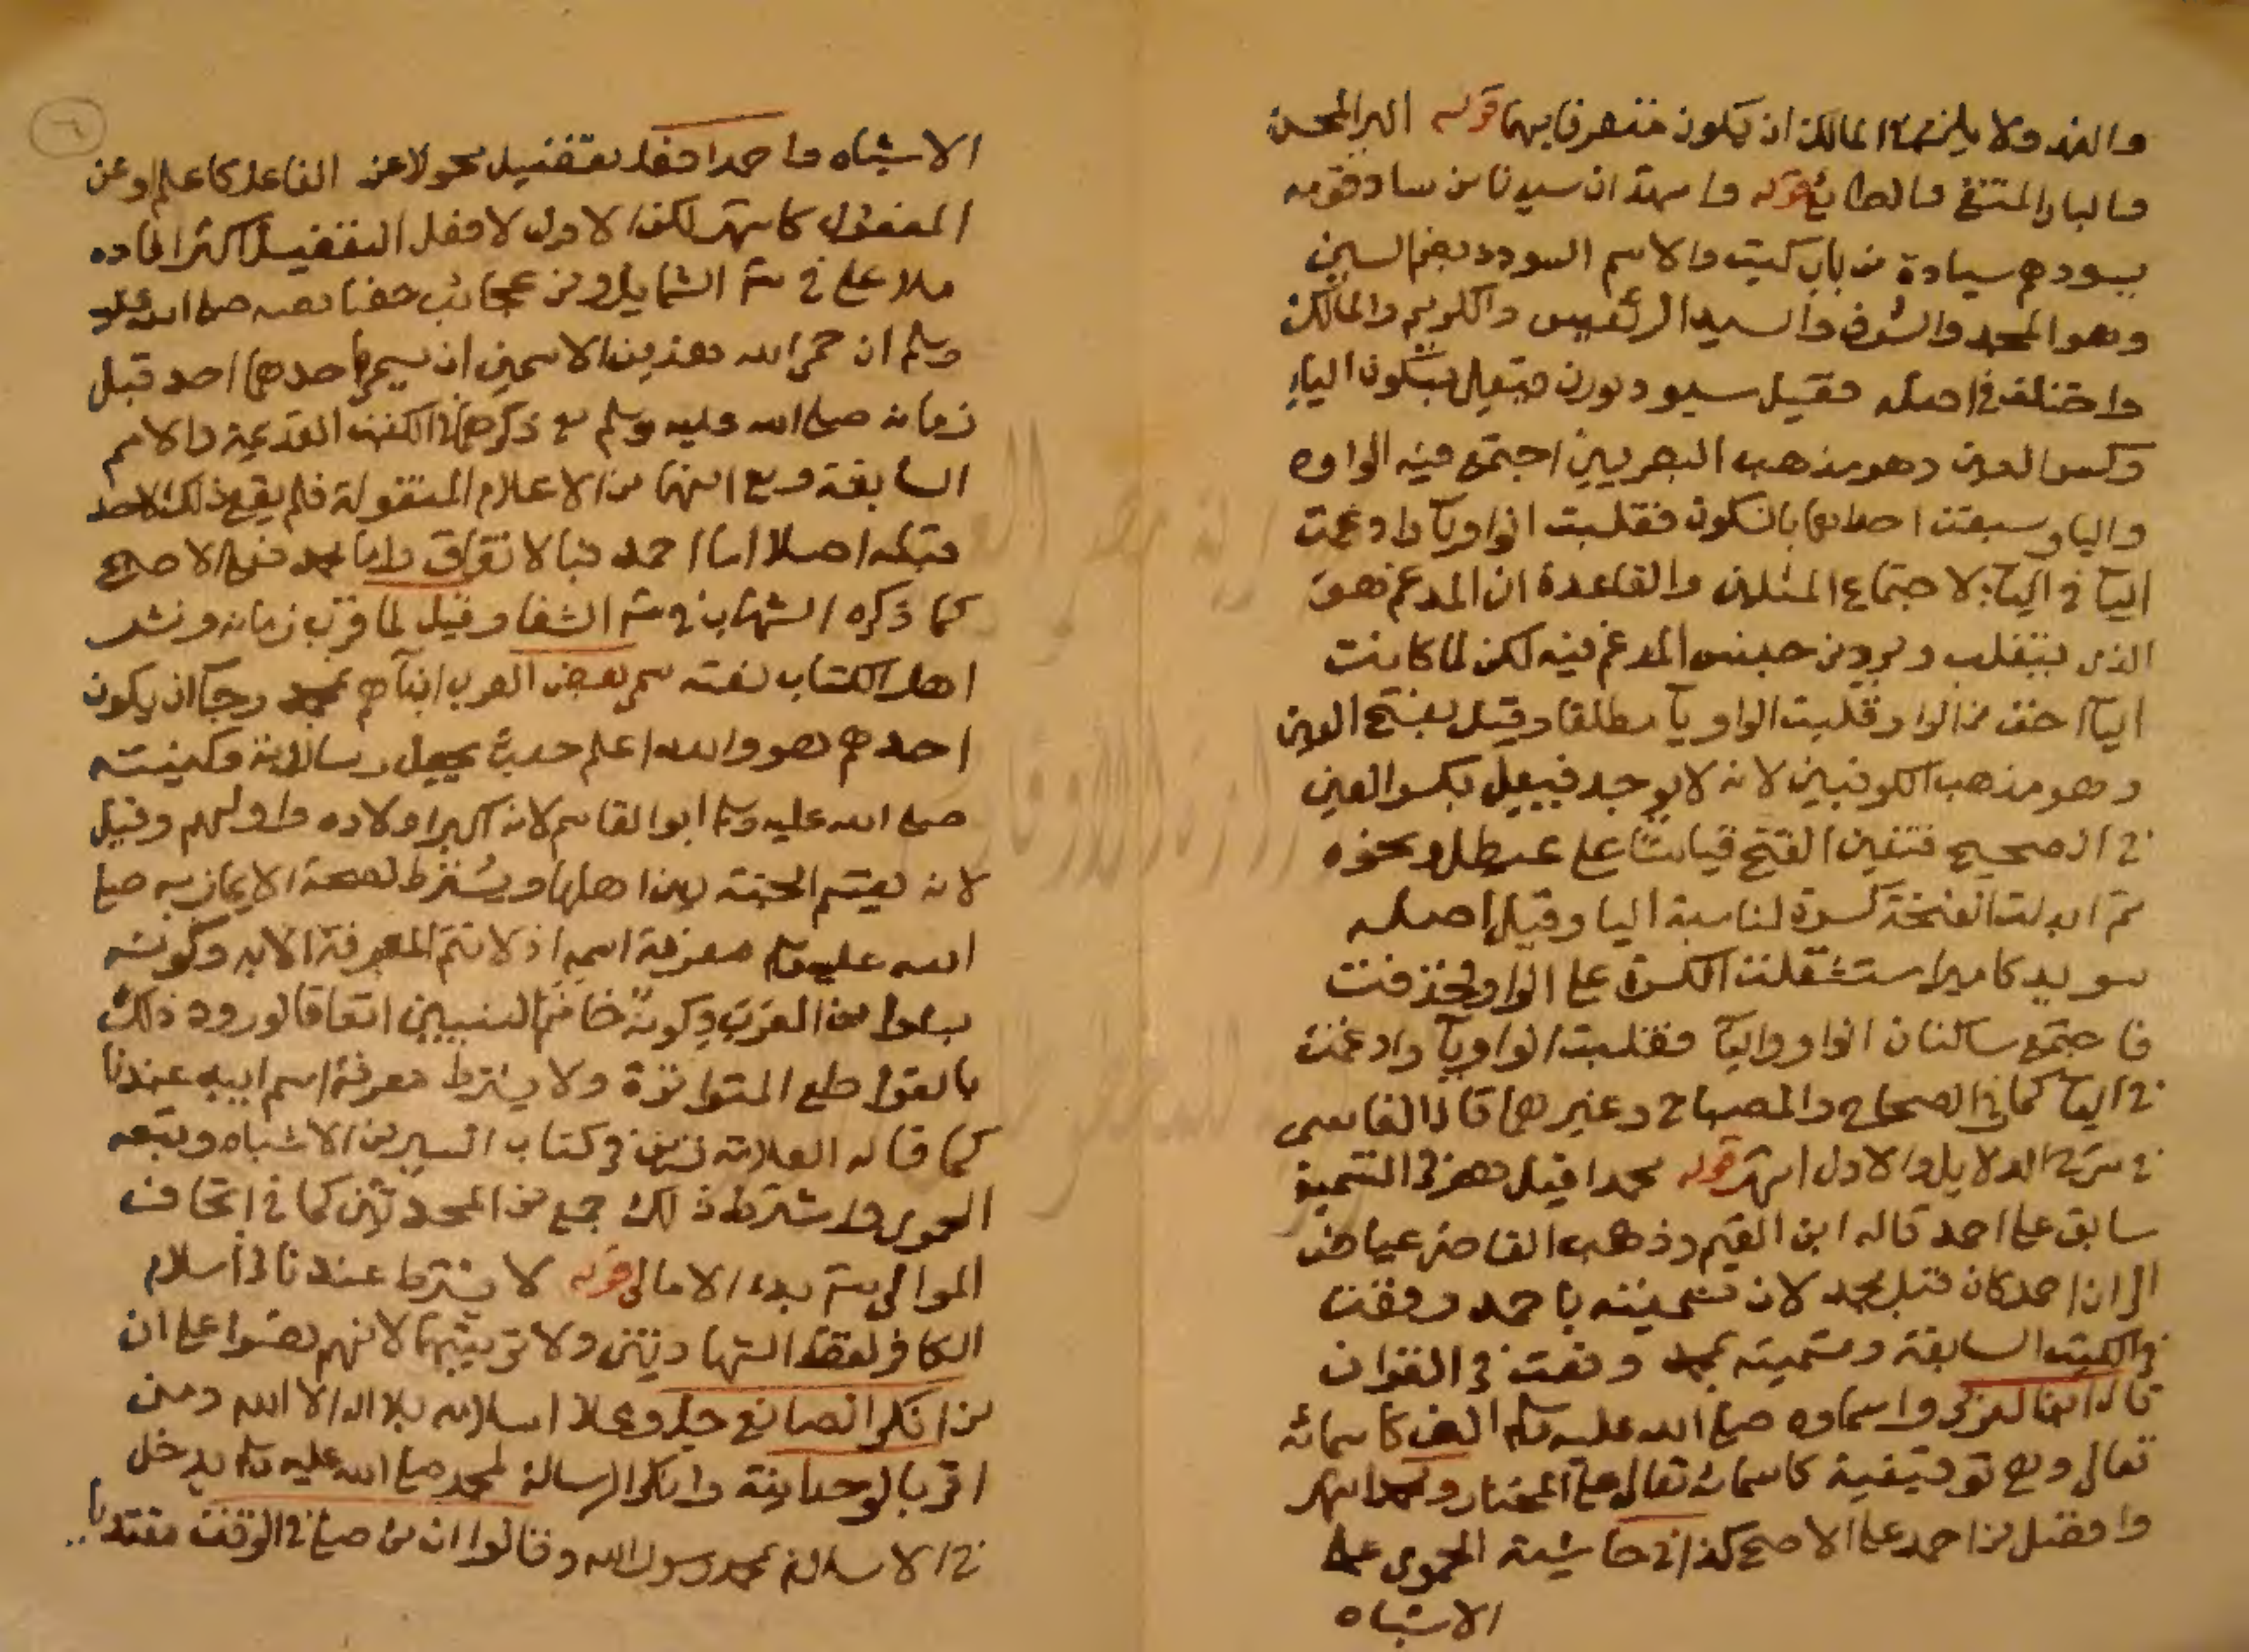 والند ولا يلزم المالك ان يكون متصرفا بهما قوله البر المحسن
والبار المتقي والصايغ قوله واسهد ان سيدنا من ساد قومه
يسودهم سيادة من باب كتب والاسم السودد بضم السين
وهو المجد والشرف والسيد الرئيس والكريم والمالك
واختلف في اصله فقيل سيود بوزن فيعل بسكون الياء
وكسر العين وهو مذهب البصريين اجتمع فيه الواو
واليا وسبقت احداهما بالسكون فقلبت الواو يآ وادغمت
اليآ في اليآء لاجتماع المثلين والقاعدة ان المدغم هو
الذى ينقلب ويرد من جنس المدغم فيه لكن لما كانت
اليآ اخف من الواو قلبت الواو يآ مطلقا وقيل بفتح العين
وهو مذهب الكوفيين لانه لا يوجد فيعل بكسر العين
في الصحيح فتعين الفتح قياسًا على عيطل ونحوه
ثم ابدلت الفتحة كسرة لمناسبة اليا وقيل اصله
سويد كامير استثقلت الكسرة على الواو فحذفت
فاجتمع ساكنان الواو واليآ فقلبت الواو يآ وادغمت
في اليآ كما في الصحاح والمصباح وغيرهما قاله الفاسى
في شرح الدلايل والاول اشهر قوله محمدا قيل هو في التسمية
سابق على احمد قاله ابن القيم وذهب القاضى عياض
الى ان احمد كان قبل محمد لان تسميته باحمد وقعت
في الكتب السابقة وتسميته بمحمد وقعت في القران
قال ابن العربى واسماوه صلى الله عليه وسلم الف كاسمائه
تعالى وهى توقيفية كاسمائه تعالى على المختار ومحمد اشهر
وافضل من احمد على الاصح كذا في حاشية الحموى على
الاشباه
الاشباه واحمد افعل تفضيل محولا عن الفاعل كاعلم او عن
المفعول كاشهر لكن الاول لافعل التفضيل اكثر افاده
ملا على في شرح الشمايل ومن عجائب خصايصه صلى الله عليه
وسلم ان حمى الله هذين الاسمين ان يسمى باحدهما احد قبل
زمانه صلى الله عليه وسلم مع ذكرهما في الكتب القديمة والامم
السابقة ومع انهما من الاعلام المنقولة فلم يقع ذلك لاحد
قبله اصلا اما احمد فبالاتفاق واما محمد فعلى الاصح
كما ذكره الشهاب في شرح الشفا وقيل لما قرب زمانه ونشر
اهل الكتاب نعته سمى بعض العرب ابنآهم بمحمد رجآ ان يكون
احدهم هو والله اعلم حيث يجعل رسالاته وكنيته
صلى الله عليه وسلم ابو القاسم لانه اكبر اولاده واولهم وقيل
لانه يقسم الجنة بين اهلها ويشترط لصحة الايمان به صلى
الله عليه وسلم معرفة اسمه اذ لا تتم المعرفة الا به وكونه
بشرا من العرب وكونه خاتم النبيين اتفاقا لورود ذلك
بالقواطع المتواترة ولا يشترط معرفة اسم ابيه عندنا
كما قاله العلامة في كتاب السير من الاشباه وتبعه
الحموى واشترط ذلك جمع من المحدثين كما في اتحاف
الموالى شرح بدء الامالى قوله لا يشترط عندنا في اسلام
الكافر لفظ الشهادتين ولا ترتيبهما لانهم نصوا على ان
من انكر الصانع جل وعلا اسلامه بلا اله الا الله ومن
اقر بالوحدانية وانكر الرسالة لمحمد صلى الله عليه وسلم يدخل
في الاسلام بمحمد رسول الله وقالوا ان من صلى في الوقت مقتديا